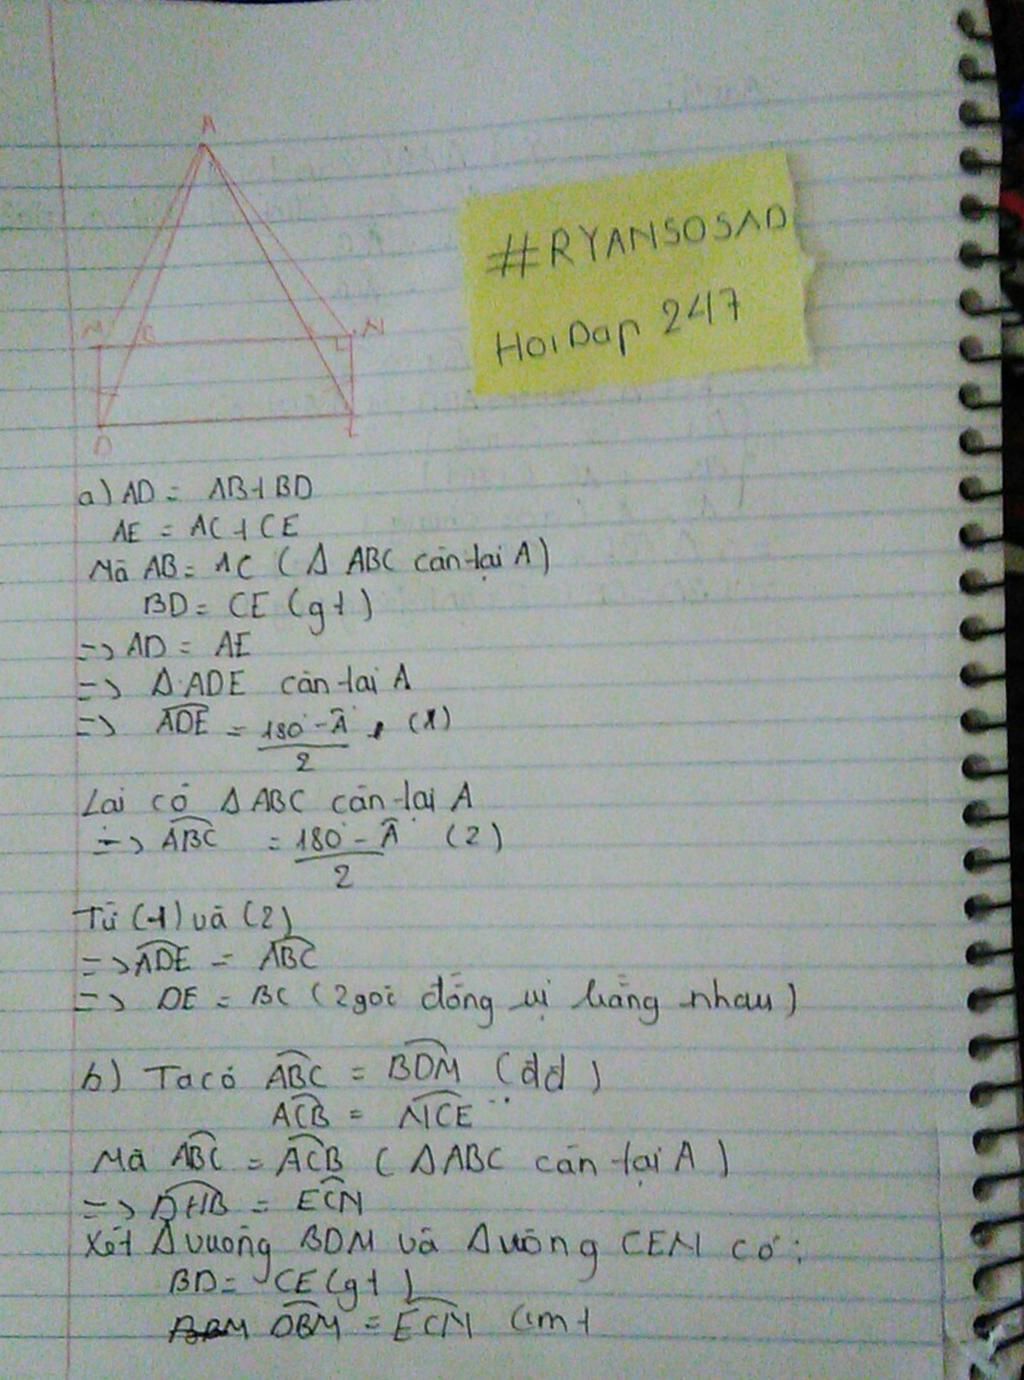 A
M B N
D E
#RYANSOSAD
HoiDap 247
a) AD = AB + BD
AE = AC + CE
Mà AB = AC ( Δ ABC cân tại A )
BD = CE (gt)
=> AD = AE
=> Δ ADE cân tại A
=> ADE = 180° - A / 2 (1)
Lại có Δ ABC cân tại A
=> ABC = 180° - A / 2 (2)
Từ (1) và (2)
=> ADE = ABC
=> DE = BC ( 2 góc đồng vị bằng nhau )
b) Ta có ABC = BDM (đđ)
ACB = NCE
Mà ABC = ACB ( Δ ABC cân tại A )
=> = ECN
Xét Δ vuông BDM và Δ vuông CEN có :
BD = CE (gt)
DBM = ECN (cmt